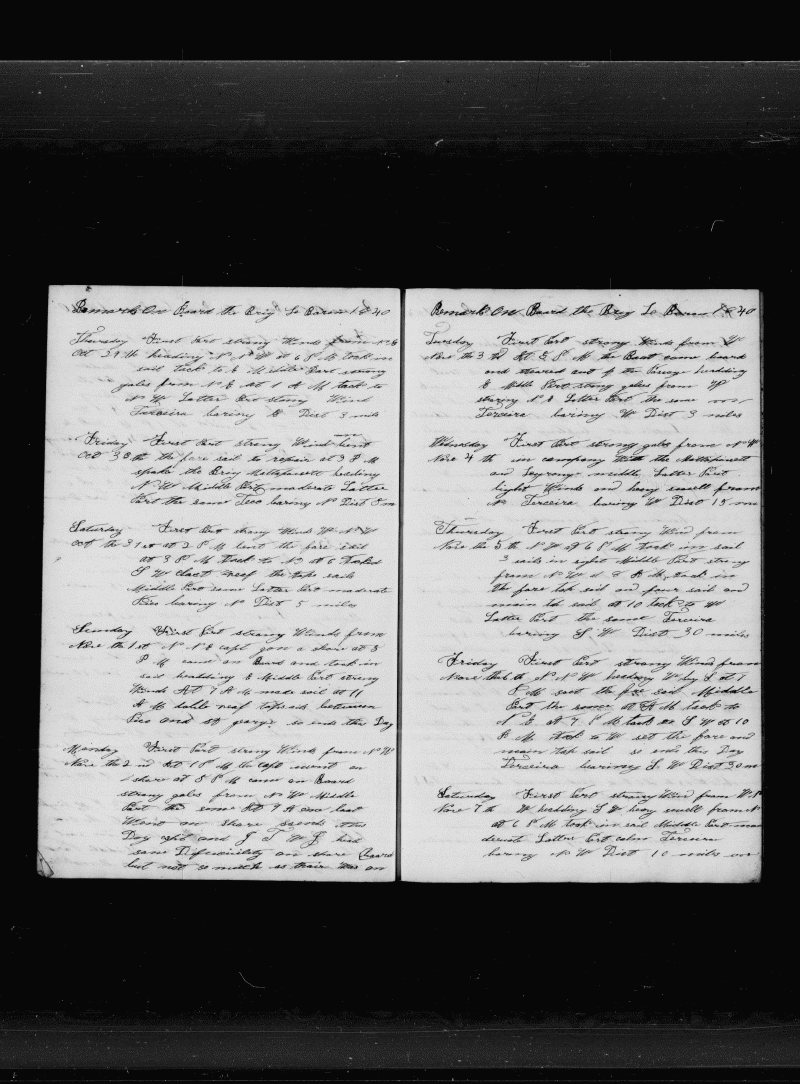 Remark On Board the Brig Le Baron 1840
Thursday First Part strong Winds from N E
Oct 29 th heading N N W at 6 P M took in
sail tack to E Middle Part strong
gales from N E at 1 A M tack to
N W Latter Part strong Wind
Terceira baring E Dist 3 mile
Friday First Part strong Wind bent
Oct 30 th the fore sail to repair at 3 P M
spoke the Brig Mattapoisett heding
N W Middle Part moderate Latter
Part the same Pico baring N Dist 8 m
Saturday First Part strong Winds W N W
Oct the 31 st at 2 P M bent the fore sail
at 3 P M Tack to N at 6 Tacked
S W clast reef the tops sails
Middle Part same Latter Part moderate
Pico baring N Dist 5 miles
Sunday First Part strong Winds from
Nove the 1 st N N E capt gon a shore at 8
P M came on Board and took in
sail hedding E Middle Part strong
Winds At 7 A M made sail at 11
A M duble reaf topsails between
Pico and st georges so ends this Day
Monday First Part strong Winds from N W
Nove the 2 nd At 1 P M the capt went on
shore at 8 P M came on Board
strong gales from N W Middle
Part the same At 9 A M boat
Went on Shore so ends this
Day capt and J T W G had
some Difficulty on shore (board
but not so much as thair was on
Remark On Board the Brig Le Baron 1840
Tuesday First Part strong Winds from W
Nove the 3 d At 8 P M the Boat came board
and steared out of the Passage hedding
E Middle Part strong gales from W
staring N E Latter Part the same
Terceira baring W Dist 3 miles
Wednesday First Part strong gales from N W
Nove 4 th in company With the Mattapoisett
and middle Latter Part
light Winds and heavy swell from
N Terceira baring W Dist 15 m
Thursday First Part strong Wind from
Nove the 5 th N W At 6 P M took in sail
3 sails in sight Middle Part strong
from N W at A M took in
the fore top sail and four sail and
main top sail at 10 Tack to W
Latter Part the same Terceira
baring S W Dist 30 miles
Friday First Part strong Wind from
Nove the 6 th N N W hedding W by S at 7
P M set the fore sail Middle
Part the same at A M tack to
N E at 7 P M tack to S W at 10
A M tack to W set the fore and
main top sail so ends this Day
Terceira baring S W Dist 30 m
Saturday First Part strong Wind from W
Nove 7 th W hedding S W heavy swell from N
at 6 P M took in sail Middle Part mo
derate Latter Part calm Terceira
baring N W Dist 10 miles